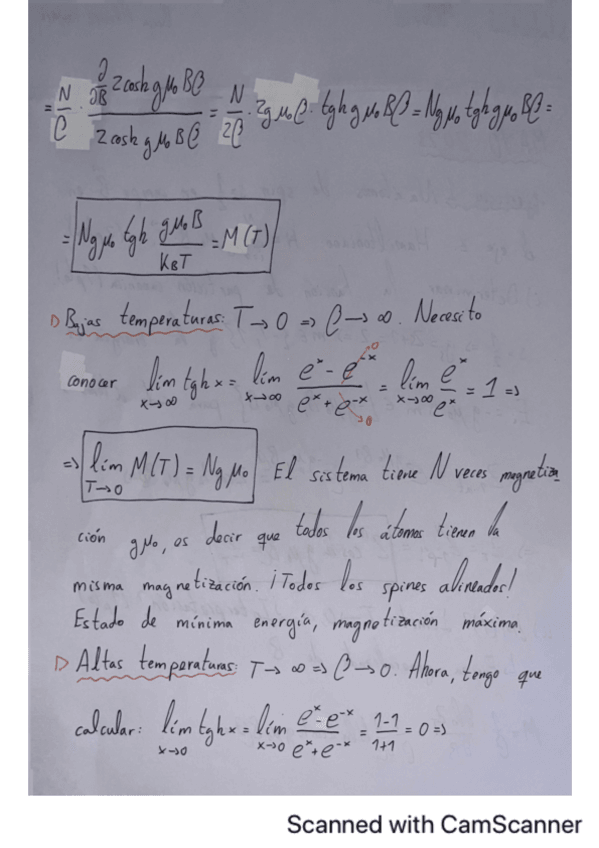 = N/β · (∂/∂B 2 cosh gμ₀Bβ)/(2 cosh gμ₀Bβ) = N/2β · 2gμ₀β · tgh gμ₀Bβ = Ngμ₀ tgh gμ₀Bβ =
= Ngμ₀ tgh gμ₀B/K_BT = M(T)
▷ Bajas temperaturas: T→0 ⇒ β→∞. Necesito
conocer lím_{x→∞} tgh x = lím_{x→∞} (eˣ - e⁻ˣ→0)/(eˣ + e⁻ˣ→0) = lím_{x→∞} eˣ/eˣ = 1 ⇒
⇒ lím_{T→0} M(T) = Ngμ₀ El sistema tiene N veces magnetiza
ción gμ₀, es decir que todos los átomos tienen la
misma magnetización. ¡Todos los spines alineados!
Estado de mínima energía, magnetización máxima.
▷ Altas temperaturas: T→∞ ⇒ β→0. Ahora, tengo que
calcular: lím_{x→0} tgh x = lím_{x→0} (eˣ - e⁻ˣ)/(eˣ + e⁻ˣ) = (1-1)/(1+1) = 0 ⇒
Scanned with CamScanner